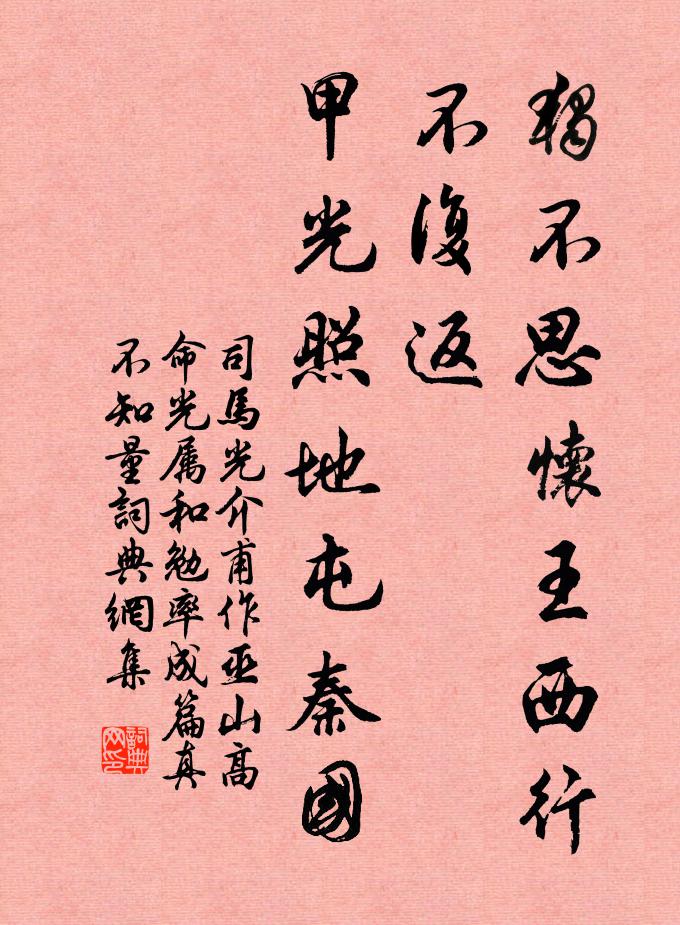 獨不思懷王西行
不復返
甲光照地屯秦國
司馬光介甫作巫山高
命光属和勉率成篇真
不知量詞典網集
詞典
网印